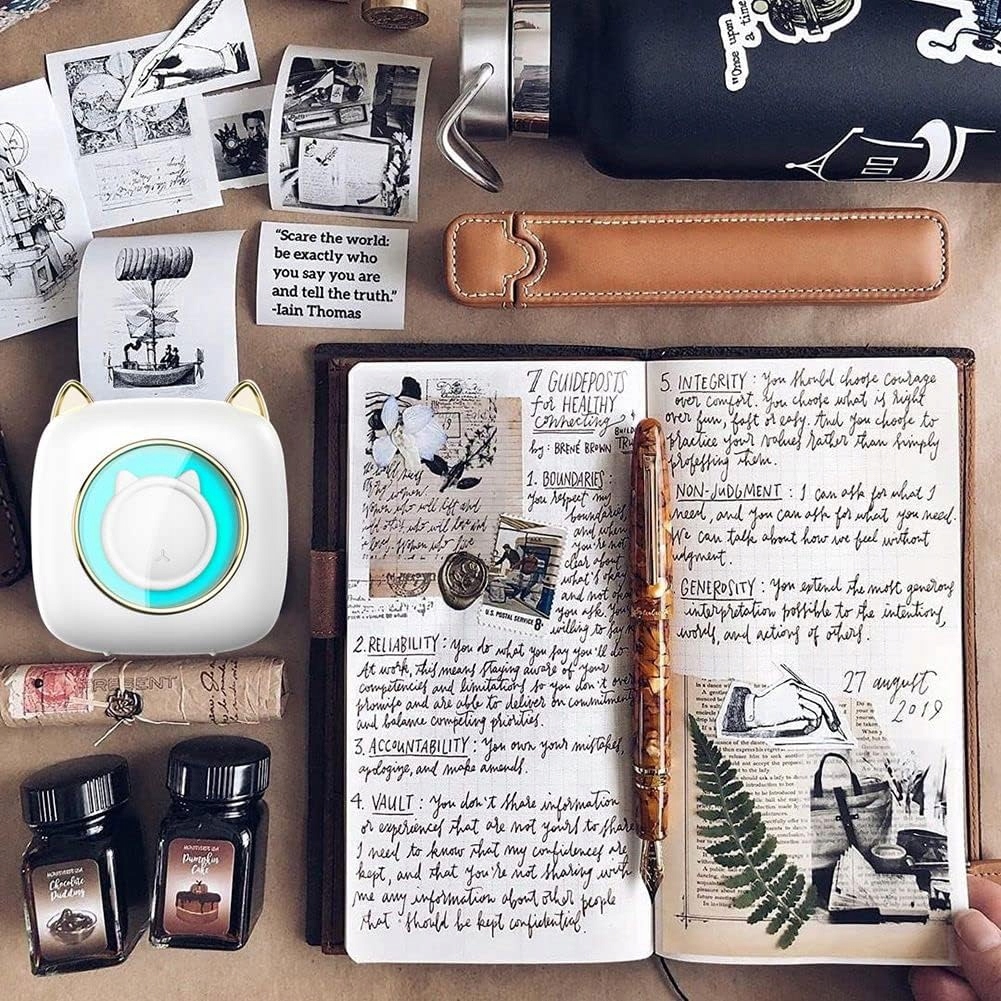 "Once upon
a time"
"Scare the world:
be exactly who
you say you are
and tell the truth."
-Iain Thomas
7 GUIDEPOSTS
for HEALTHY
Connecting
by: BRENÉ BROWN
1. BOUNDARIES:
You respect my
boundaries
and when
you're not
clear about
what's okay
and not okay
you ask. You're
willing to say no
U.S. POSTAL SERVICE 8¢
2. RELIABILITY: You do what you say you'll do.
At work, this means staying aware of your
competencies and limitations so you don't over
promise and are able to deliver on commitments
and balance competing priorities.
3. ACCOUNTABILITY: You own your mistakes,
apologize, and make amends.
4. VAULT: You don't share information
or experiences that are not yours to share.
I need to know that my confidences are
kept, and that you're not sharing with
me any information about other people
that should be kept confidential.
5. INTEGRITY: You should choose courage
over comfort. You choose what is right
over fun, fast or easy. And you choose to
practice your values rather than simply
professing them.
NON-JUDGMENT: I can ask for what I
need, and you can ask for what you need.
We can talk about how we feel without
judgment.
GENEROSITY: You extend the most generous
interpretation possible to the intentions,
words, and actions of others.
27 august
2019
Chocolate
Pudding
Pumpkin
Cake